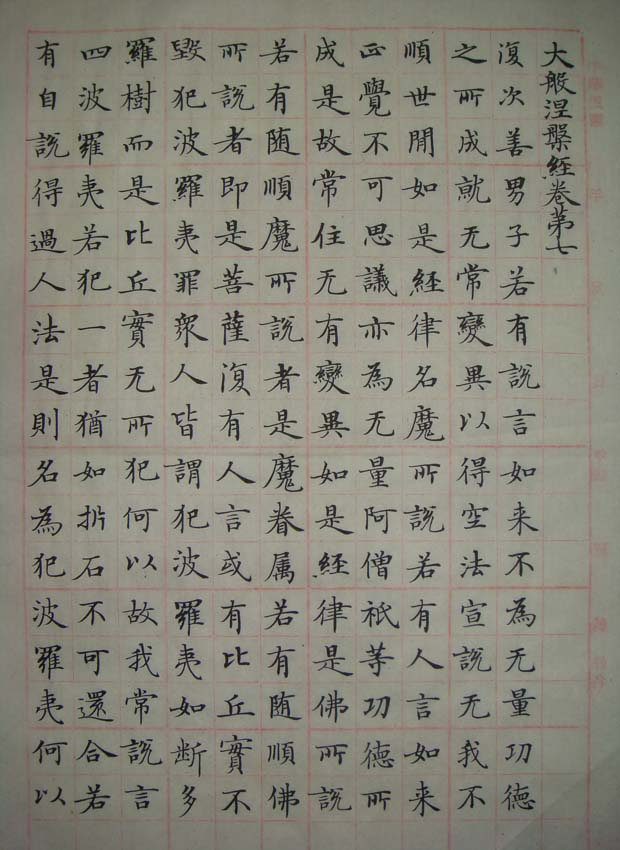 大般涅槃經卷第七
復次善男子若有說言如来不為无量功德
之所成就无常變異以得空法宣說无我不
順世間如是經律名魔所說若有人言如来
正覺不可思議亦為无量阿僧祇等功德所
成是故常住无有變異如是經律是佛所說
若有随順魔所說者是魔眷属若有随順佛
所說者即是菩薩復有人言或有比丘實不
毀犯波羅夷罪眾人皆謂犯波羅夷如断多
羅樹而是比丘實无所犯何以故我常說言
四波羅夷若犯一者猶如㭊石不可還合若
有自說得過人法是則名為犯波羅夷何以